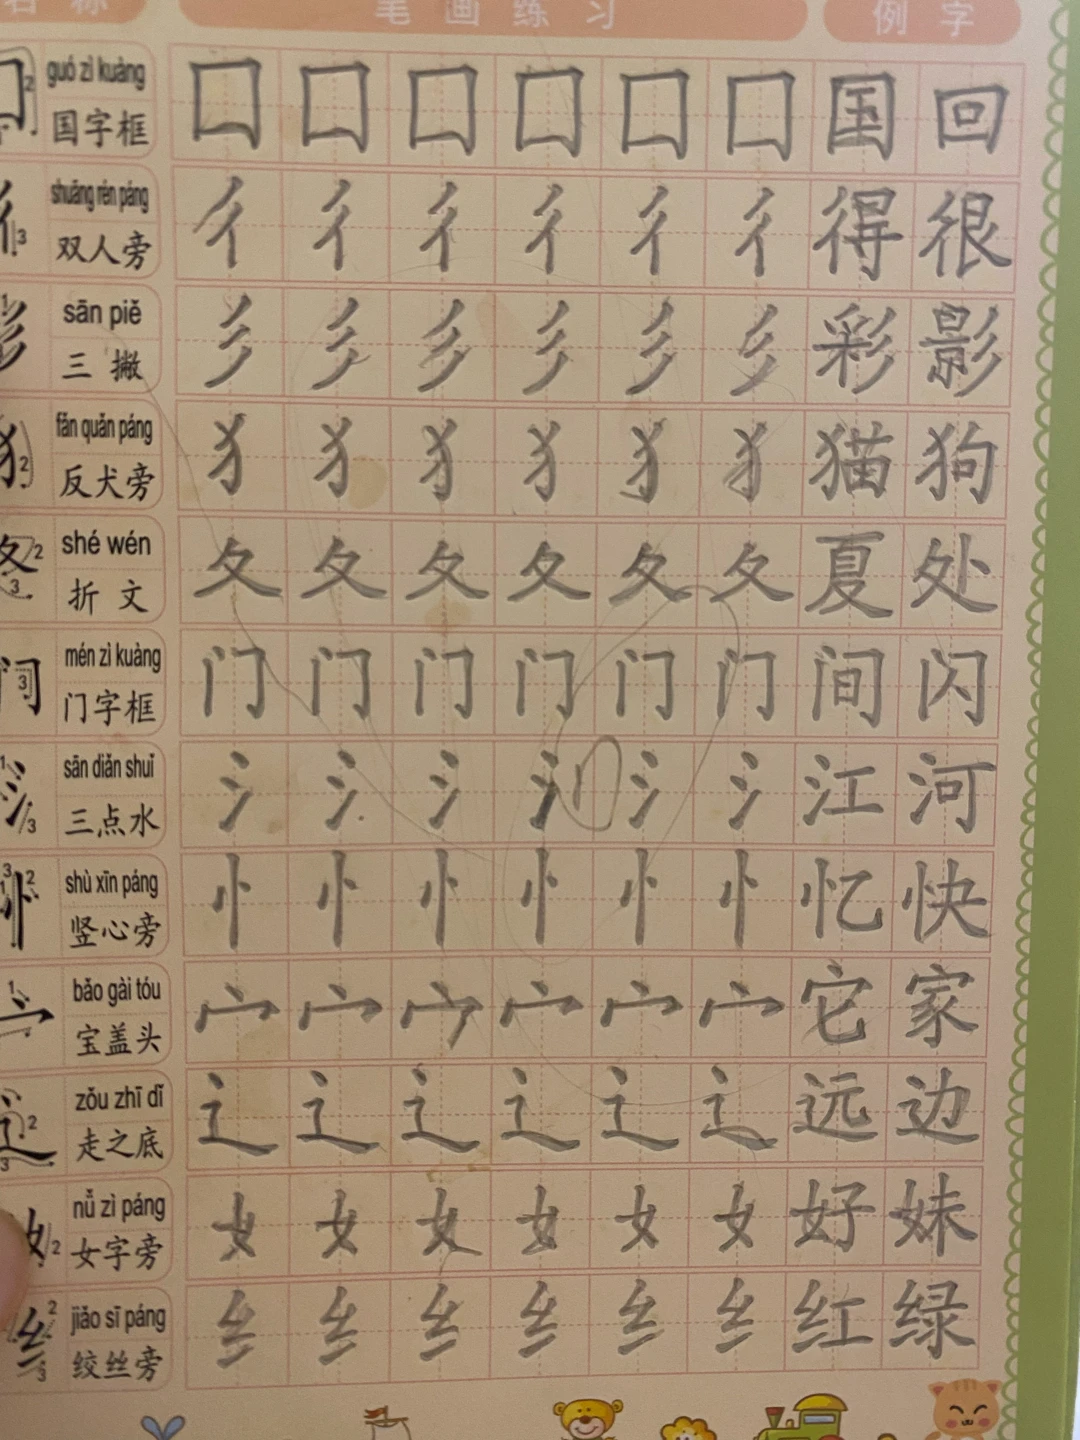 名称 笔画练习 例字
guó zì kuàng
国字框 囗 囗 囗 囗 囗 囗 国 回
shuāng rén páng
双人旁 彳 彳 彳 彳 彳 彳 得 很
sān piě
三撇 彡 彡 彡 彡 彡 彡 彩 影
fǎn quǎn páng
反犬旁 犭 犭 犭 犭 犭 犭 猫 狗
shé wén
折文 夂 夂 夂 夂 夂 夂 夏 处
mén zì kuàng
门字框 门 门 门 门 门 门 间 闪
sān diǎn shuǐ
三点水 氵 氵 氵 氵 氵 氵 江 河
shù xīn páng
竖心旁 忄 忄 忄 忄 忄 忄 忆 快
bǎo gài tóu
宝盖头 宀 宀 宀 宀 宀 宀 它 家
zǒu zhī dǐ
走之底 辶 辶 辶 辶 辶 辶 远 边
nǚ zì páng
女字旁 女 女 女 女 女 女 好 妹
jiǎo sī páng
绞丝旁 纟 纟 纟 纟 纟 纟 红 绿